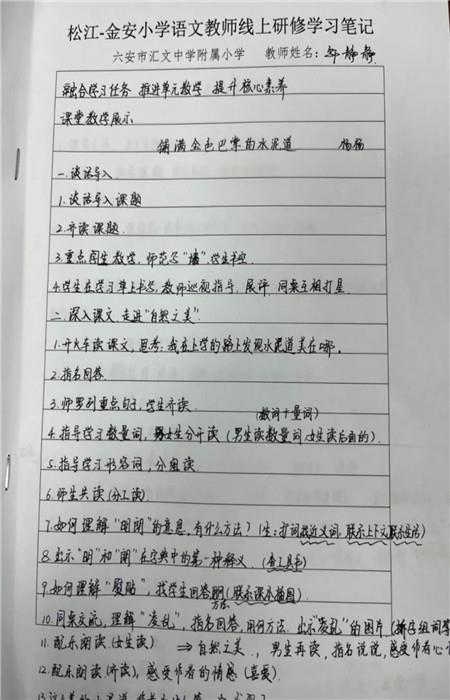 松江-金安小学语文教师线上研修学习笔记
六安市汇文中学附属小学 教师姓名:静静
融合学习任务 推进单元教学 提升核心素养
课堂教学展示
铺满金色巴掌的水泥道 杨杨
一.谈话导入
1.谈话导入课题
2.齐读课题.
3.重点图生教学,师范写"墙".学生书空
4.学生在学习单上书写,教师巡视指导,展评.同桌互相打星.
二.深入课文.走进"自然之美".
1.开火车读课文,思考:我在上学的路上发现水泥道美在哪。
2.指名回答.
3.师罗列重点句子,学生齐读. (数词+量词)
4.指导学习数量词,男女生分开读(男生读数量词.女生读后面的).
5.指导学习形容词,分组读.
6.师生共读(分工读).
7.如何理解"明朗"的意思,有什么方法?(生:扩词找近义词,联系上下文联系生活)
8.出示"明"和"朗"在字典中的第一种释义.(查工具书)
9.如何理解"熨帖",找学生回答(联系课本插图)
方法.
10.同桌交流,理解"凌乱",指名回答,用何方法.出示"凌乱"的图片(拆字组词等
11.配乐朗读.(女生读) ⇒自然之美.,男生再读,指名说说,感受作者心
12.配乐朗读(齐读),感受作者的情感(喜爱).